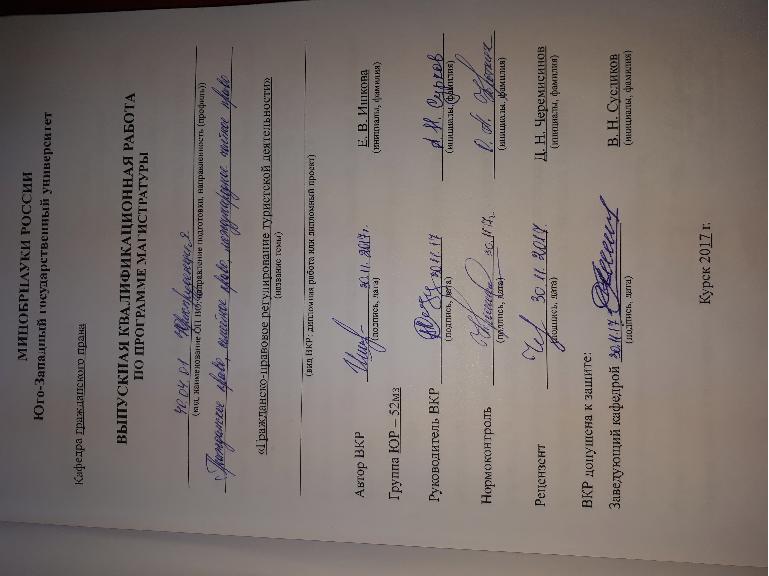 МИНОБРНАУКИ РОССИИ
Юго-Западный государственный университет
Кафедра гражданского права
ВЫПУСКНАЯ КВАЛИФИКАЦИОННАЯ РАБОТА
ПО ПРОГРАММЕ МАГИСТРАТУРЫ
40.04.01 Юриспруденция
(код, наименование ОП ВО, направление подготовки, направленность (профиль))
Гражданское право, семейное право, международное частное право
«Гражданско-правовое регулирование туристской деятельности»
(название темы)
(вид ВКР: дипломная работа или дипломный проект)
Автор ВКР 30.11.2017г. Е. В. Ишкова
(подпись, дата) (инициалы, фамилия)
Группа ЮР – 52мз
Руководитель ВКР 30.11.17 Сурков
(подпись, дата) (инициалы, фамилия)
Нормоконтроль 30.11.17г.
(подпись, дата) (инициалы, фамилия)
Рецензент 30.11.2017 Д. Н. Черемисинов
(подпись, дата) (инициалы, фамилия)
ВКР допущена к защите:
Заведующий кафедрой 30.11.17 В. Н. Сусликов
(подпись, дата) (инициалы, фамилия)
Курск 2017 г.